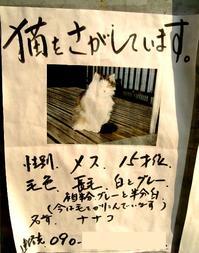 猫をさがしています。
性別、メス、15才位
毛色、長毛、白とグレー、
グレーと半分白
(今は毛をかりこんでいます)
名前 ナナコ
連絡先 090-